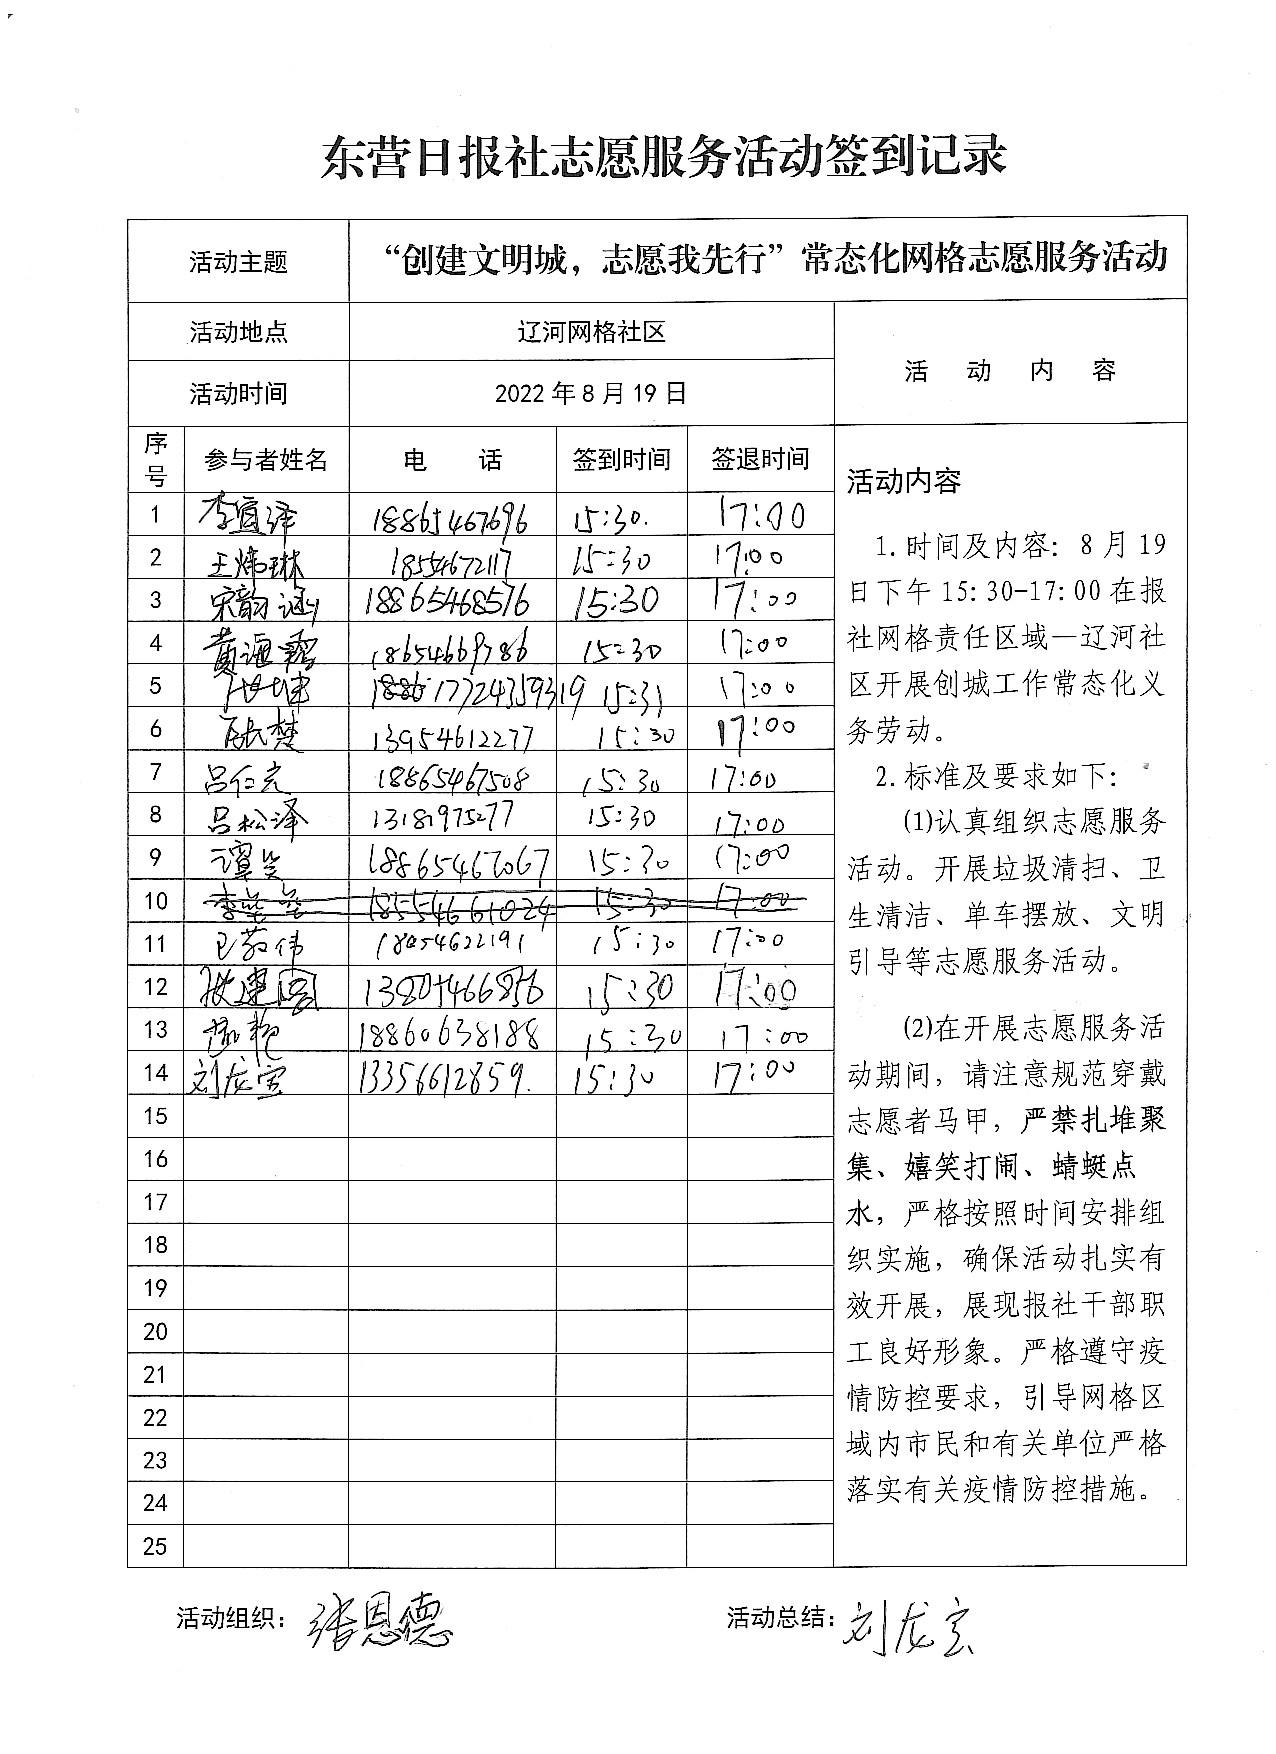 东营日报社志愿服务活动签到记录
活动主题 “创建文明城，志愿我先行”常态化网格志愿服务活动
活动地点 辽河网格社区
活动时间 2022年8月19日
活 动 内 容
序号 参与者姓名 电 话 签到时间 签退时间
1 李宜泽 18865467696 15:30. 17:00
2 王炜琳 18554672117 15:30 17:00
3 宋韵涵 18865468576 15:30 17:00
4 18654669786 15:30 17:00
5 15:31 17:00
6 张楚 13954612277 15:30 17:00
7 吕仁亮 18865467508 15:30 17:00
8 吕松泽 13181975277 15:30 17:00
9 谭笑 18865467067 15:30 17:00
10 18554661024 15:30 17:00
11 18054622191 15:30 17:00
12 15:30 17:00
13 18860638188 15:30 17:00
14 刘龙宝 13356612859. 15:30 17:00
15
16
17
18
19
20
21
22
23
24
25
活动内容
1.时间及内容：8月19
日下午15:30-17:00在报
社网格责任区域—辽河社
区开展创城工作常态化义
务劳动。
2.标准及要求如下：
⑴认真组织志愿服务
活动。开展垃圾清扫、卫
生清洁、单车摆放、文明
引导等志愿服务活动。
⑵在开展志愿服务活
动期间，请注意规范穿戴
志愿者马甲，严禁扎堆聚
集、嬉笑打闹、蜻蜓点
水，严格按照时间安排组
织实施，确保活动扎实有
效开展，展现报社干部职
工良好形象。严格遵守疫
情防控要求，引导网格区
域内市民和有关单位严格
落实有关疫情防控措施。
活动组织：张恩德 活动总结：刘龙宝